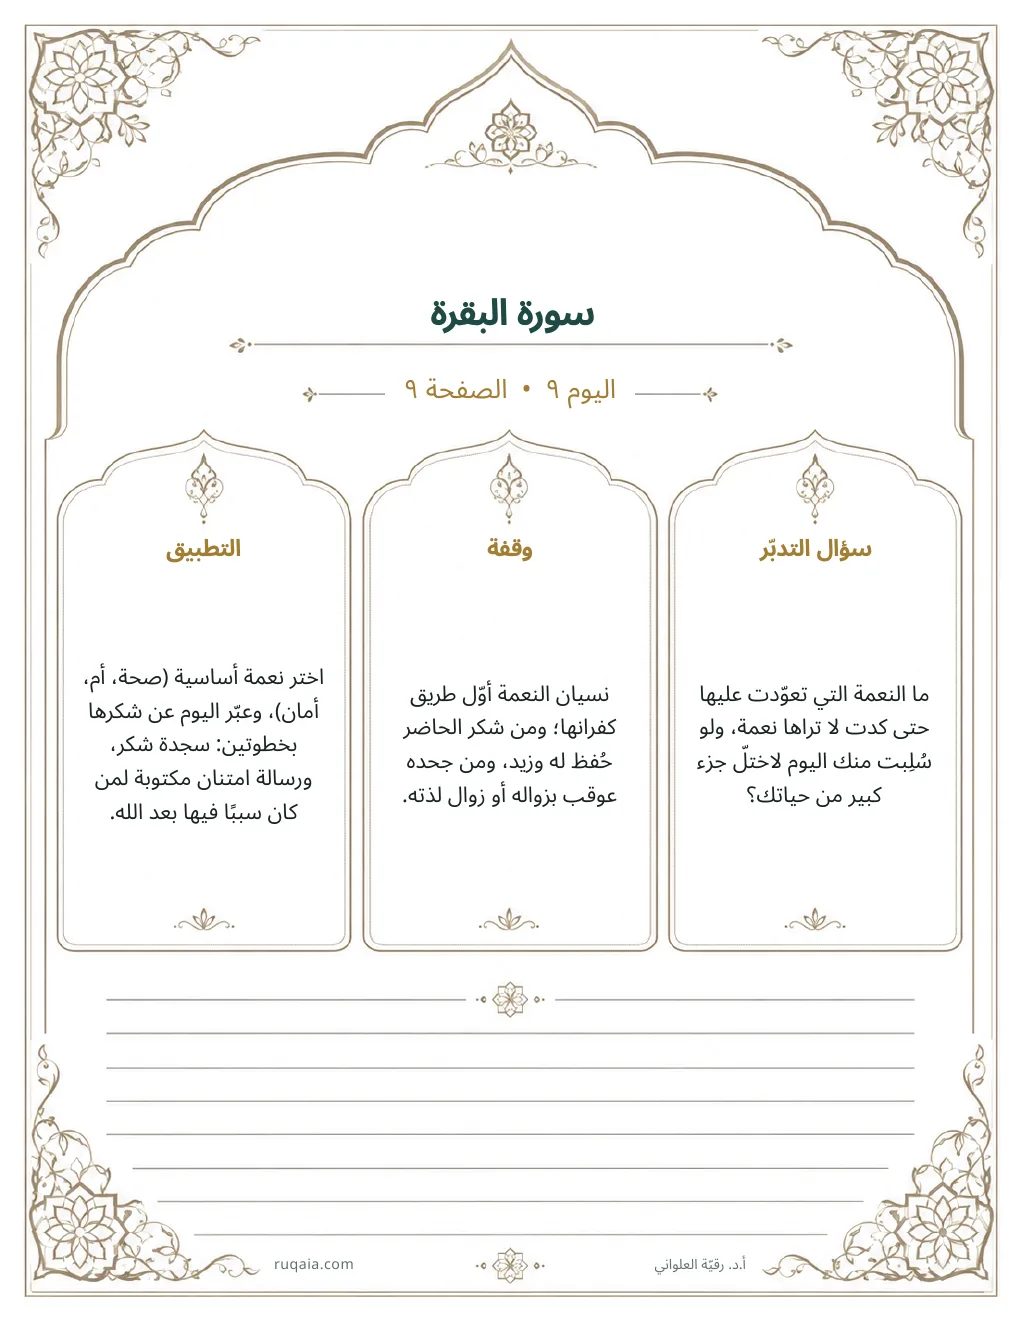 سورة البقرة
اليوم ٩ • الصفحة ٩
سؤال التدبّر
ما النعمة التي تعوّدت عليها
حتى كدت لا تراها نعمة، ولو
سُلِبت منك اليوم لاختلّ جزء
كبير من حياتك؟
وقفة
نسيان النعمة أوّل طريق
كفرانها؛ ومن شكر الحاضر
حُفظ له وزيد، ومن جحده
عوقب بزواله أو زوال لذته.
التطبيق
اختر نعمة أساسية (صحة، أم،
أمان)، وعبّر اليوم عن شكرها
بخطوتين: سجدة شكر،
ورسالة امتنان مكتوبة لمن
كان سببًا فيها بعد الله.
أ.د. رقيّة العلواني
ruqaia.com